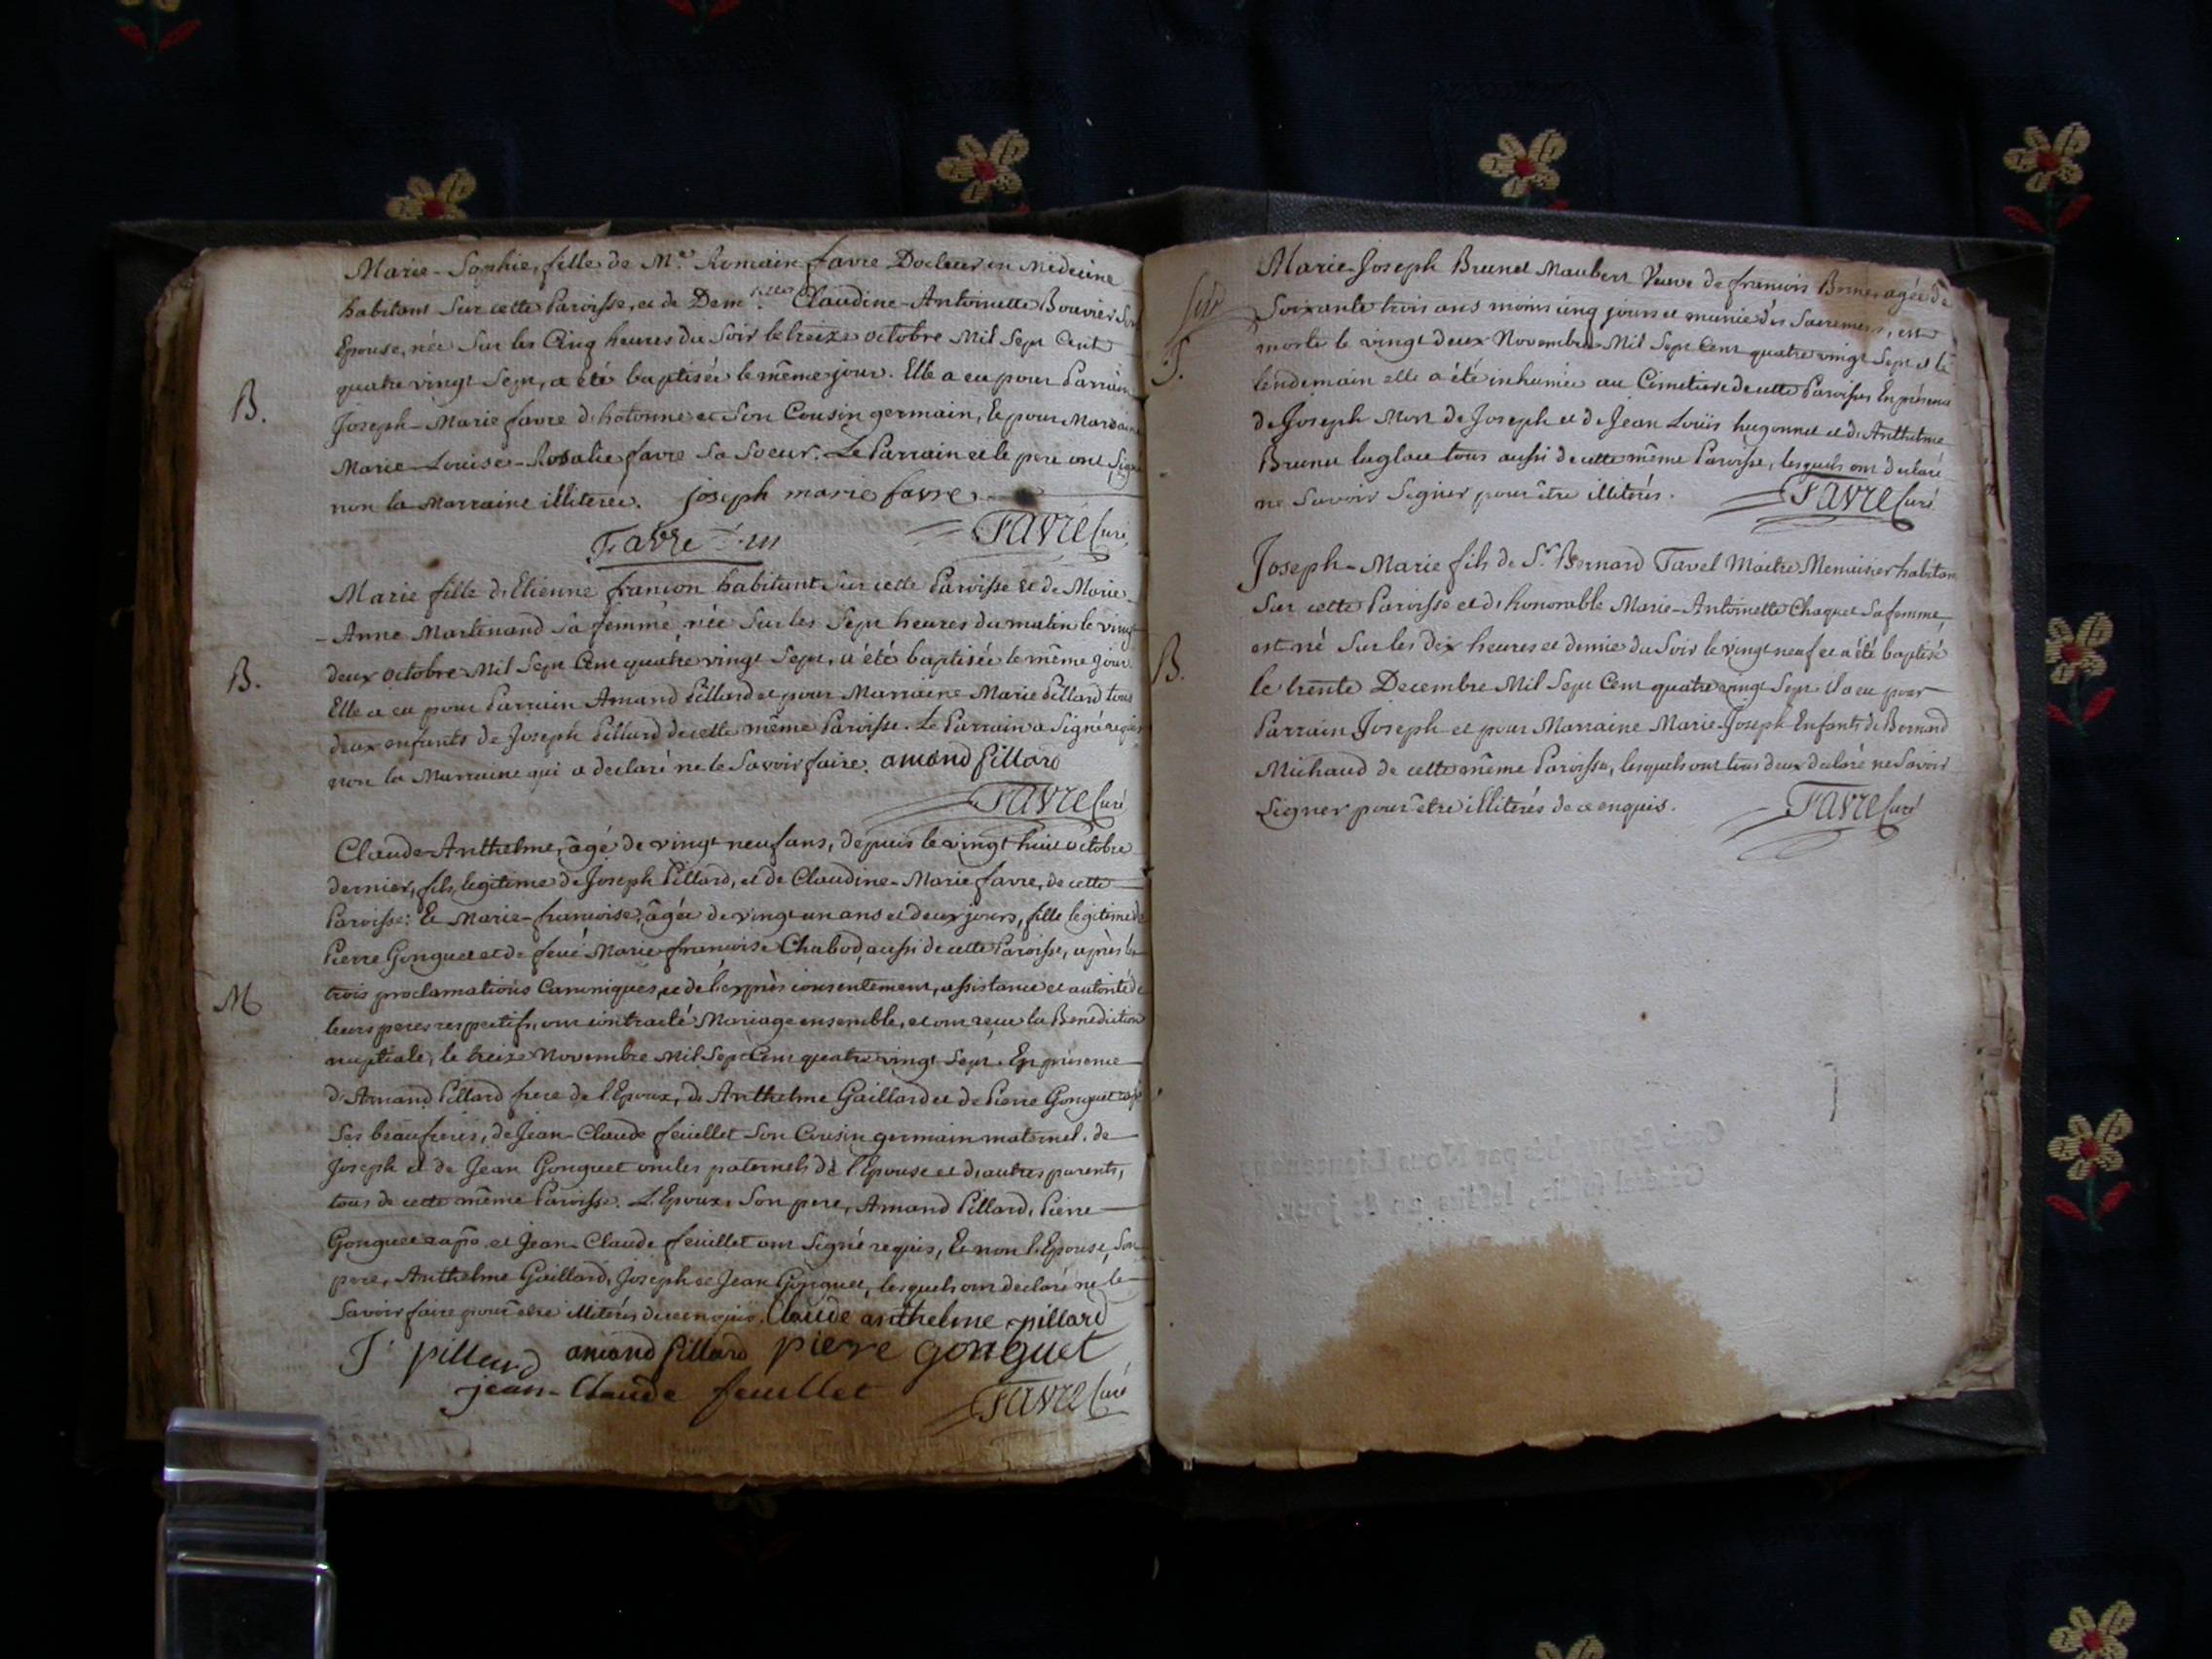 Marie-Sophie, fille de Mre Romain favre Docteur en Médecine
habitant Sur cette Paroisse, et de Demlle Claudine-Antoinette Bouvier Son
Epouse, née Sur les Cinq heures du Soir le treize octobre Mil Sept Cent
quatre vingt Sept, a été baptisée le même jour. Elle a eu pour Parrain
B.
Joseph-Marie favre d'hotonne et Son Cousin germain, Et pour Marraine
Marie-Louise-Rosalie favre Sa Soeur. Le Parrain et le pere ont Signé
non la Marraine illiterée. joseph marie favre
Favre
FAVRE Curé
Marie fille d'Etienne françon habitant Sur cette Paroisse Et de Marie-
-Anne Martinand Sa femme, née Sur les Sept heures du matin le vingt
deux octobre Mil Sept Cent quatre vingt Sept, a été baptisée le même jour.
B.
Elle a eu pour Parrain Amand Pillard et pour Marraine Marie Pillard tous
deux enfants de Joseph Pillard de cette même Paroisse. Le Parrain a Signé requis
non la Marraine qui a declaré ne le Savoir faire. amand pillard
FAVRE Curé
Claude-Anthelme, âgé de vingt neuf ans, depuis le vingt huit octobre
dernier, fils legitime de Joseph Pillard, et de Claudine-Marie favre, de cette
Paroisse: Et Marie-françoise, âgée de vingt un ans et deux jours, fille legitime de
Pierre Gonguet et de feue Marie françoise Chabod, aussi de cette Paroisse, après les
M
trois proclamations Canoniques, et de l'exprès consentement, assistance et autorité de
leurs peres respectifs, ont contracté Mariage ensemble, et ont reçu la Benediction
nuptiale, le treize Novembre Mil Sept Cent quatre vingt Sept. En présence
d'Amand Pillard frere de l'Epoux, de Anthelme Gaillard et de Pierre Gonguet
Ses beaufreres, de Jean-Claude feuillet Son Cousin germain maternel. de
Joseph et de Jean Gonguet oncles paternels de l'Epouse et d'autres parents,
tous de cette même Paroisse. L'Epoux, Son pere, Amand Pillard, Pierre
Gonguet et Jean-Claude feuillet ont Signé requis, Et non l'Epouse, Son
pere, Anthelme Gaillard, Joseph et Jean Gonguet, lesquels ont declaré ne le
Savoir faire pour être illiterés de ce enquis. Claude anthelme pillard
J pillard amand pillard pierre gonguet
jean-Claude feuillet FAVRE Curé
Marie-Joseph Brunet Maubert Veuve de francois Brunet agée de
Soixante trois ans moins cinq jours et munie des Sacremens, est
morte le vingt deux Novembre Mil Sept Cent quatre vingt Sept et le
lendemain elle a été inhumée au Cimetiere de cette Paroisse En présence
de Joseph Mort de Joseph et de Jean Louis hugonnet et d'Anthelme
Brunet tous aussi de cette même Paroisse, lesquels ont declaré
ne Savoir Signer pour être illiterés. FAVRE Curé
Joseph-Marie fils de Sr Bernard Tavel Maitre Menuisier habitant
Sur cette Paroisse et d'honorable Marie-Antoinette Chaquet Sa femme,
est né Sur les dix heures et demie du Soir le vingt neuf et a été baptisé
B.
le trente Decembre Mil Sept Cent quatre vingt Sept. il a eu pour
Parrain Joseph et pour Marraine Marie-Joseph Enfants de Bernard
Michaud de cette même Paroisse, lesquels ont tous deux declaré ne Savoir
Signer pour être illiterés de ce enquis. FAVRE Curé